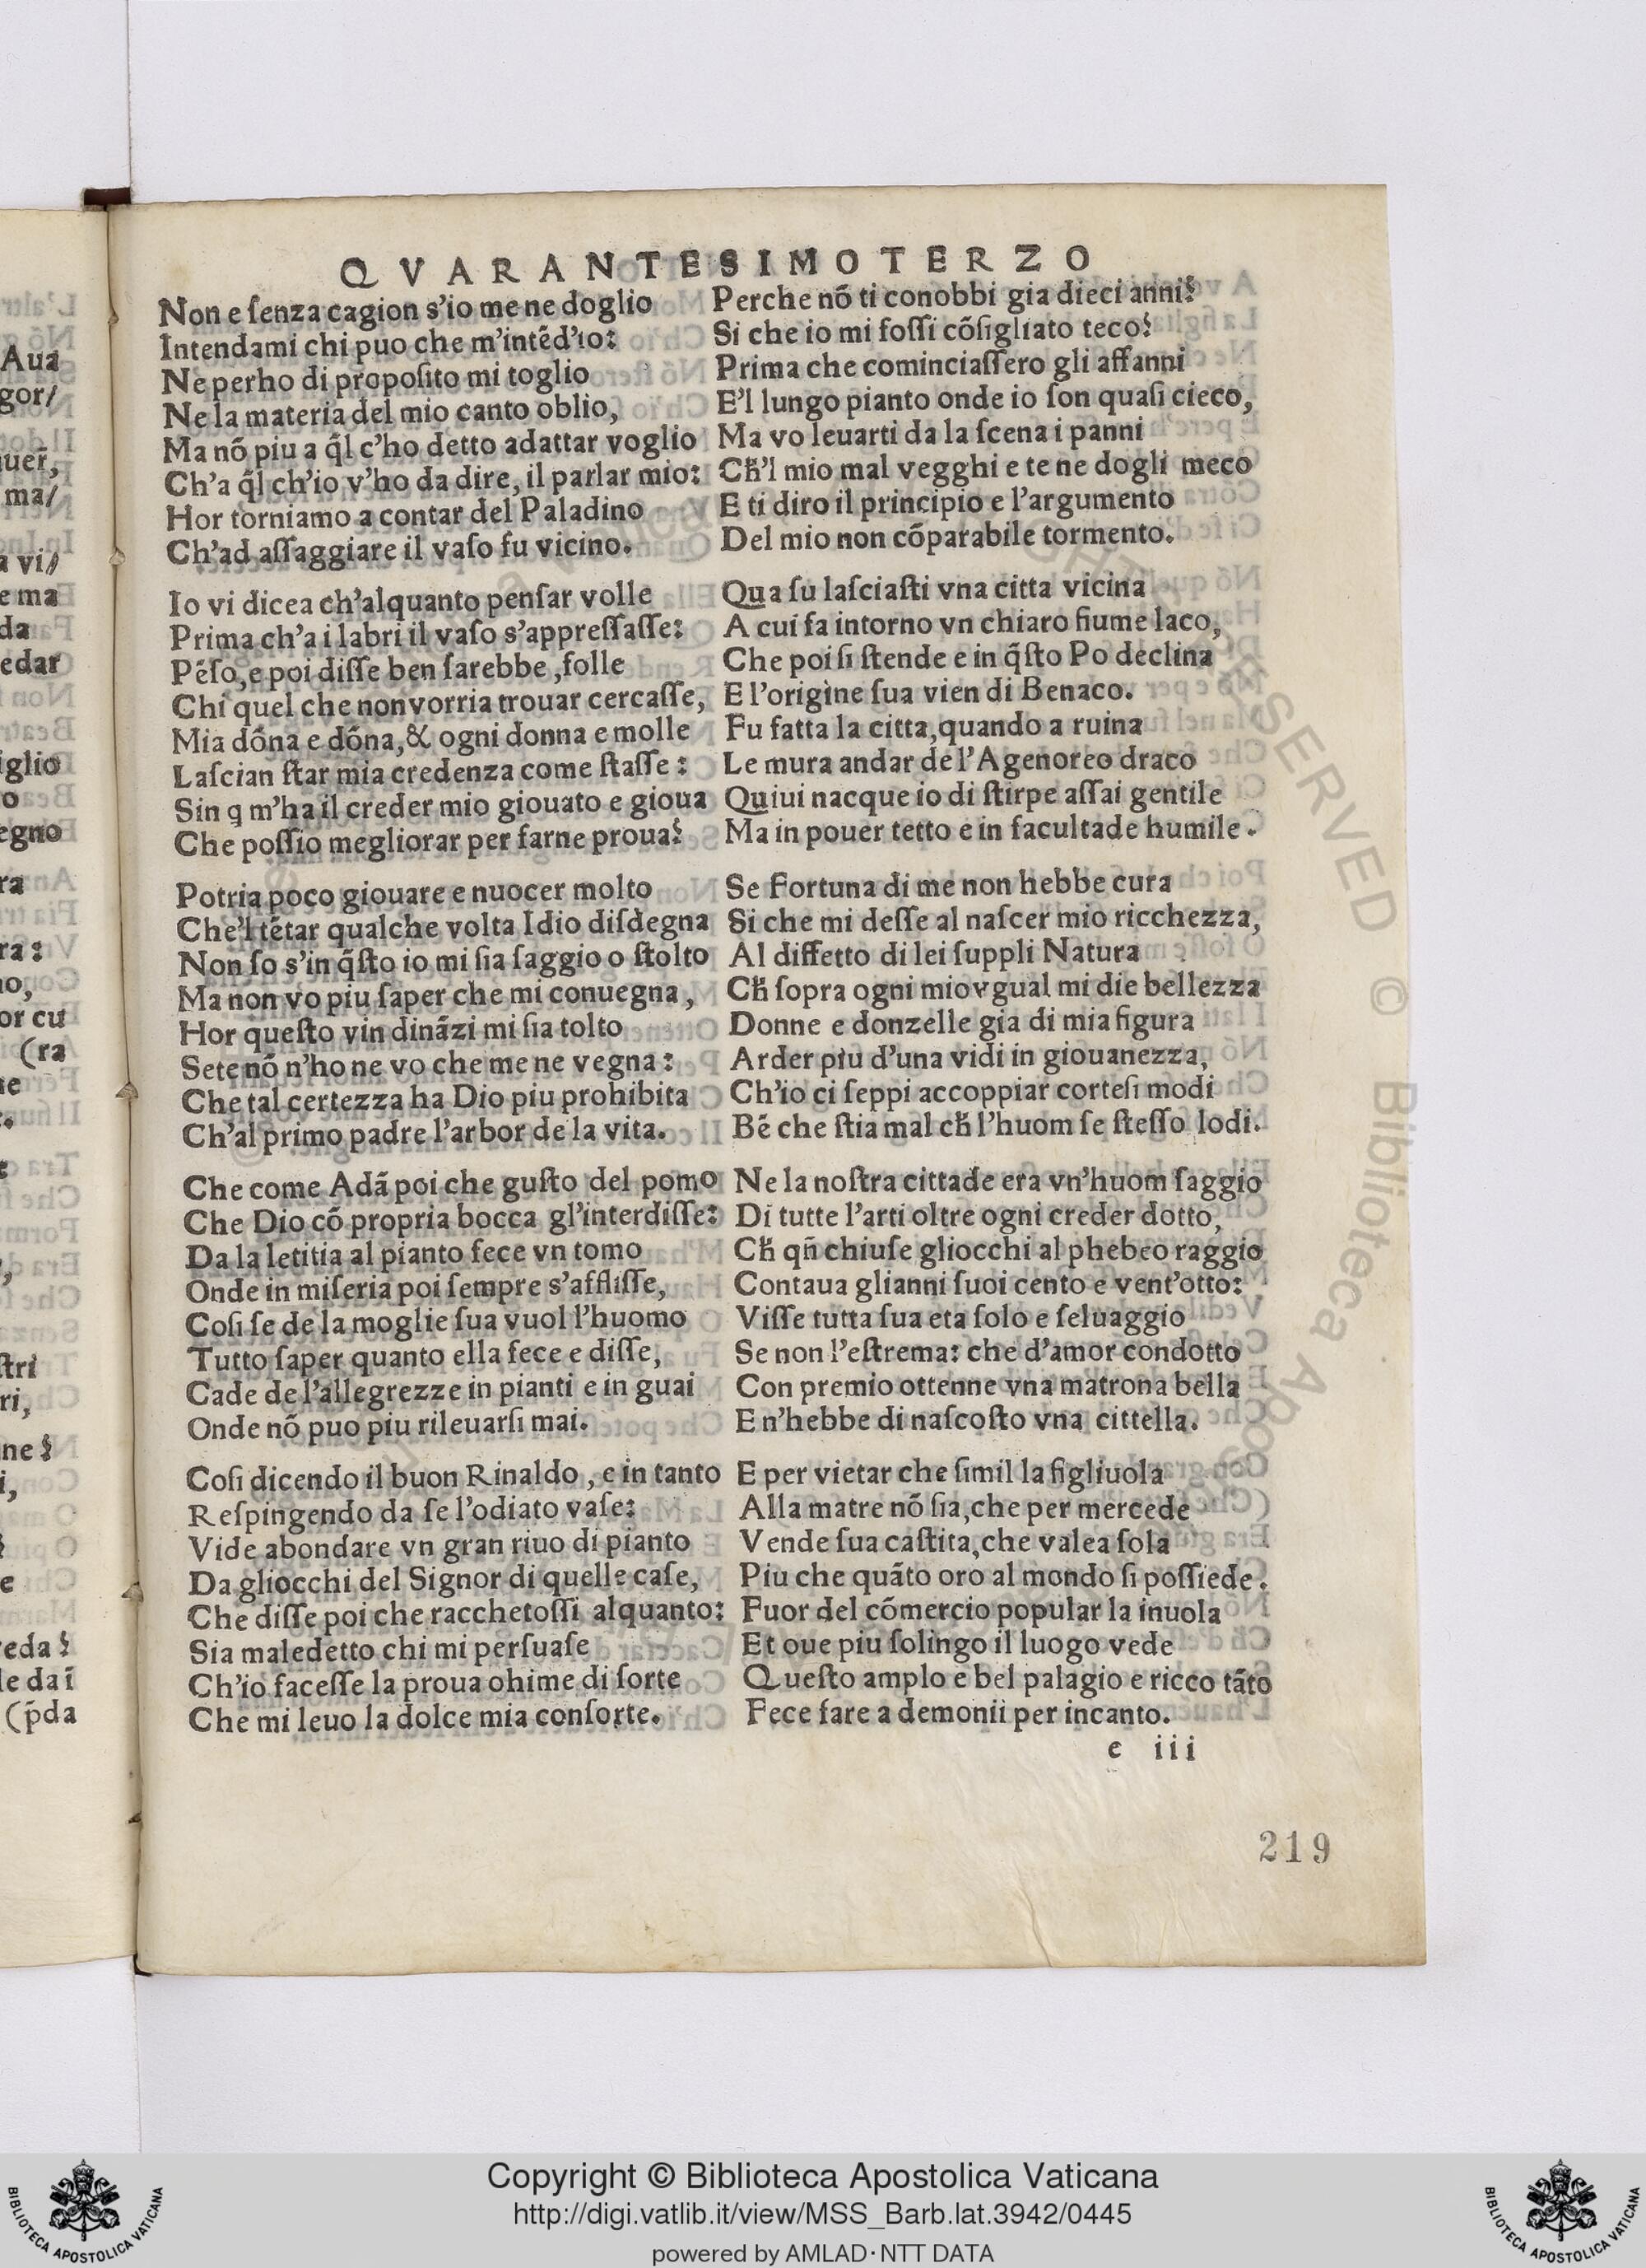 QVARANTESIMOTERZO
Non e ſenza cagion s'io me ne doglio
Intendami chi puo che m'intēd'io:
Ne perho di propoſito mi toglio
Ne la materia del mio canto oblio,
Ma nō piu a q̄l c'ho detto adattar voglio
Ch'a q̄l ch'io v'ho da dire, il parlar mio:
Hor torniamo a contar del Paladino
Ch'ad aſſaggiare il vaſo fu vicino.
Io vi dicea ch'alquanto penſar volle
Prima ch'a i labri il vaſo s'appreſſaſſe:
Pēſo, e poi diſſe ben ſarebbe, folle
Chi quel che non vorria trouar cercaſſe,
Mia dōna e dōna, & ogni donna e molle
Laſcian ſtar mia credenza come ſtaſſe:
Sin q m'ha il creder mio giouato e gioua
Che poſſio megliorar per farne proua?
Potria poco giouare e nuocer molto
Che'l tētar qualche volta Idio diſdegna
Non ſo s'in q̄ſto io mi ſia ſaggio o ſtolto
Ma non vo piu ſaper che mi conuegna,
Hor queſto vin dināzi mi ſia tolto
Sete nō n'ho ne vo che me ne vegna:
Che tal certezza ha Dio piu prohibita
Ch'al primo padre l'arbor de la vita.
Che come Adā poi che guſto del pomo
Che Dio cō propria bocca gl'interdiſſe:
Da la letitia al pianto fece vn tomo
Onde in miſeria poi ſempre s'affliſſe,
Coſi ſe de la moglie ſua vuol l'huomo
Tutto ſaper quanto ella fece e diſſe,
Cade de l'allegrezze in pianti e in guai
Onde nō puo piu rileuarſi mai.
Coſi dicendo il buon Rinaldo, e in tanto
Reſpingendo da ſe l'odiato vaſe:
Vide abondare vn gran riuo di pianto
Da gliocchi del Signor di quelle caſe,
Che diſſe poi che racchetoſſi alquanto:
Sia maledetto chi mi perſuaſe
Ch'io faceſſe la proua ohime di ſorte
Che mi leuo la dolce mia conſorte.
Perche nō ti conobbi gia dieci anni?
Si che io mi foſſi cōſigliato teco?
Prima che cominciaſſero gli affanni
E'l lungo pianto onde io ſon quaſi cieco,
Ma vo leuarti da la ſcena i panni
Cħ'l mio mal vegghi e te ne dogli meco
E ti diro il principio e l'argumento
Del mio non cōparabile tormento.
Qua ſu laſciaſti vna citta vicina
A cui fa intorno vn chiaro fiume laco,
Che poi ſi ſtende e in q̄ſto Po declina
E l'origine ſua vien di Benaco.
Fu fatta la citta, quando a ruina
Le mura andar de l'Agenoreo draco
Quiui nacque io di ſtirpe aſſai gentile
Ma in pouer tetto e in facultade humile.
Se Fortuna di me non hebbe cura
Si che mi deſſe al naſcer mio ricchezza,
Al diffetto di lei ſuppli Natura
Cħ ſopra ogni mio vgual mi die bellezza
Donne e donzelle gia di mia figura
Arder piu d'una vidi in giouanezza,
Ch'io ci ſeppi accoppiar corteſi modi
Bē che ſtia mal cħ l'huom ſe ſteſſo lodi.
Ne la noſtra cittade era vn'huom ſaggio
Di tutte l'arti oltre ogni creder dotto,
Cħ qn̄ chiuſe gliocchi al phebeo raggio
Contaua glianni ſuoi cento e vent'otto:
Viſſe tutta ſua eta ſolo e ſeluaggio
Se non l'eſtrema: che d'amor condotto
Con premio ottenne vna matrona bella
E n'hebbe di naſcoſto vna cittella.
E per vietar che ſimil la figliuola
Alla matre nō ſia, che per mercede
Vende ſua caſtita, che valea ſola
Piu che quāto oro al mondo ſi poſſiede.
Fuor del cōmercio popular la inuola
Et oue piu ſolingo il luogo vede
Queſto amplo e bel palagio e ricco tāto
Fece fare a demonii per incanto.
e iii
219
Copyright © Biblioteca Apostolica Vaticana
http://digi.vatlib.it/view/MSS_Barb.lat.3942/0445
powered by AMLAD·NTT DATA
BIBLIOTECA APOSTOLICA VATICANA
BIBLIOTECA APOSTOLICA VATICANA